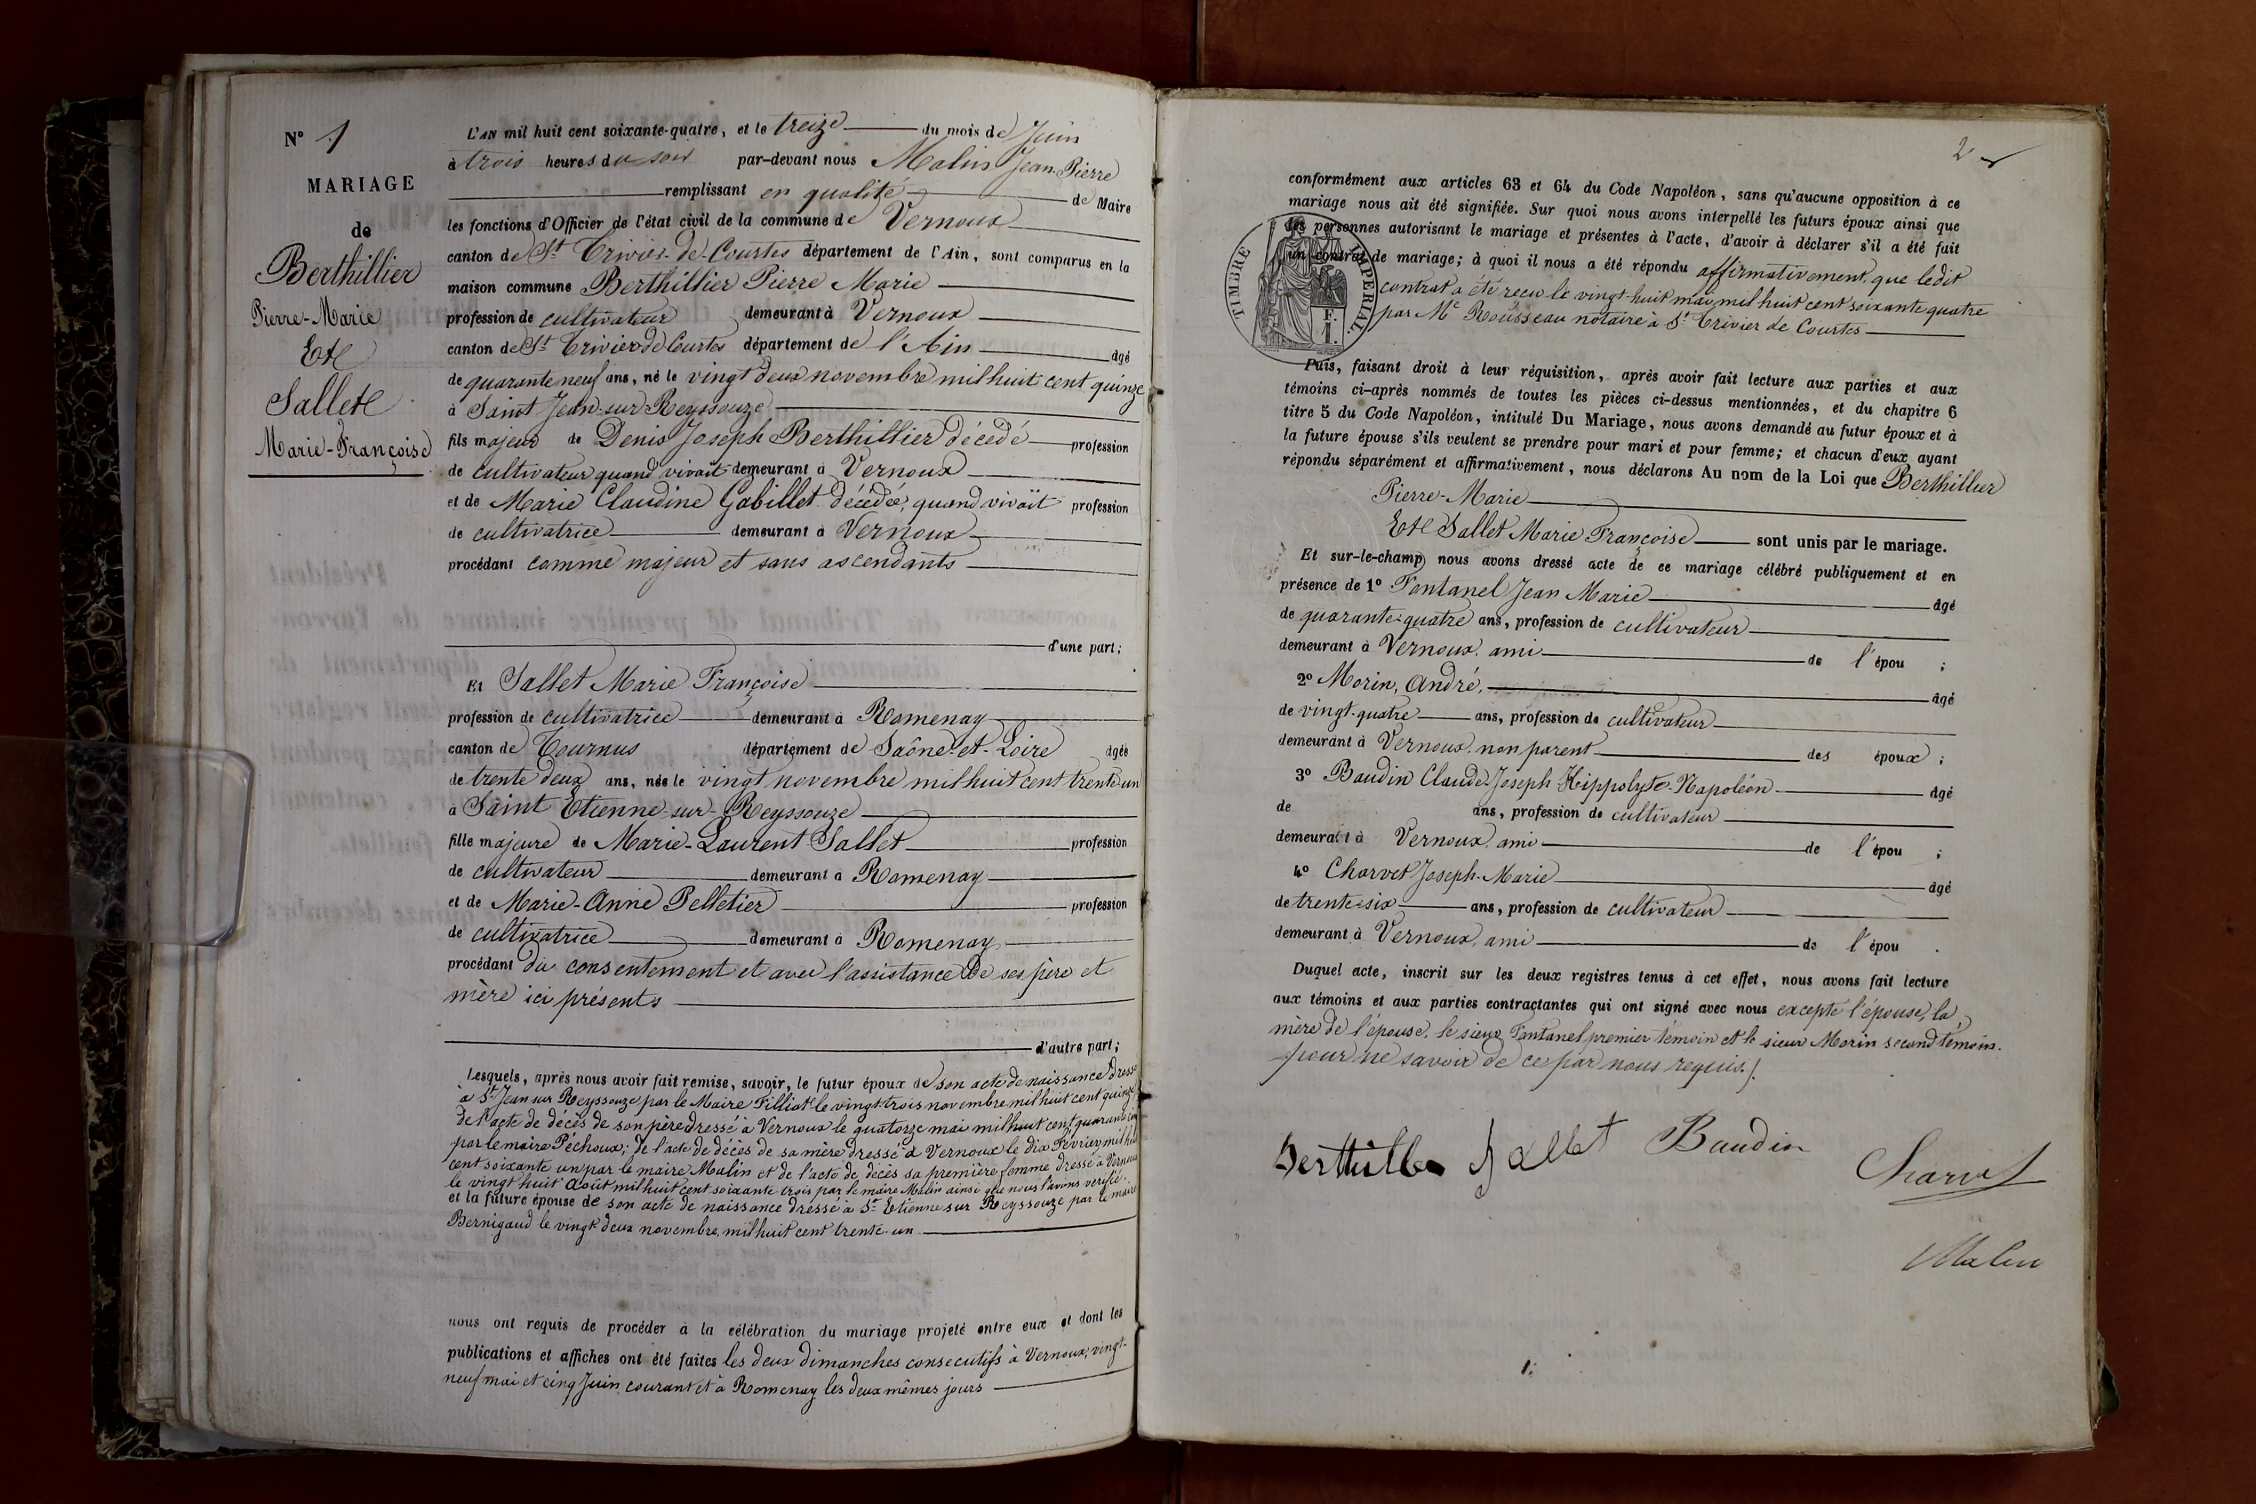 N° 1
MARIAGE
de
Berthillier
Pierre-Marie
Et
Sallet
Marie-Françoise
L'AN mil huit cent soixante-quatre, et le treize du mois de Juin
à trois heures du soir par-devant nous Malin Jean Pierre
remplissant en qualité de Maire
les fonctions d'Officier de l'état civil de la commune de Vernoux
canton de St Trivier-de-Courtes département de l'Ain, sont comparus en la
maison commune Berthillier Pierre Marie
profession de cultivateur demeurant à Vernoux
canton de St Trivier de Courtes département de l'Ain âgé
de quarante neuf ans, né le vingt deux novembre mil huit cent quinze
à Saint Jean-sur-Reyssouze
fils majeur de Denis Joseph Berthillier décédé profession
de cultivateur quand vivait demeurant à Vernoux
et de Marie Claudine Gabillet décédée, quand vivait profession
de cultivatrice demeurant à Vernoux
procédant comme majeur et sans ascendants
d'une part;
Et Sallet Marie Françoise
profession de cultivatrice demeurant à Romenay
canton de Tournus département de Saône-et-Loire âgée
de trente deux ans, née le vingt novembre mil huit cent trente-un
à Saint Etienne-sur-Reyssouze
fille majeure de Marie-Laurent Sallet profession
de cultivateur demeurant à Romenay
et de Marie-Anne Pelletier profession
de cultivatrice demeurant à Romenay
procédant du consentement et avec l'assistance de ses père et
mère ici présents
d'autre part;
Lesquels, après nous avoir fait remise, savoir, le futur époux de son acte de naissance dressé
à St Jean sur Reyssouze par le Maire Filliat le vingt-trois novembre mil huit cent quinze
de l'acte de décès de son père dressé à Vernoux le quatorze mai mil huit cent quarante
par le maire Péchoux; de l'acte de décès de sa mère dressé à Vernoux le dix Février mil huit
cent soixante un par le maire Malin et de l'acte de décès sa première femme dressé à Vernoux
le vingt huit Août mil huit cent soixante trois par le maire Malin ainsi que nous l'avons vérifié.
et la future épouse de son acte de naissance dressé à St Etienne sur Reyssouze par le maire
Bernigaud le vingt deux novembre, mil huit cent trente-un
nous ont requis de procéder à la célébration du mariage projeté entre eux et dont les
publications et affiches ont été faites les deux dimanches consecutifs à Vernoux, vingt-
neuf mai et cinq Juin courant et à Romenay les deux mêmes jours
2
conformément aux articles 63 et 64 du Code Napoléon, sans qu'aucune opposition à ce
mariage nous ait été signifiée. Sur quoi nous avons interpellé les futurs époux ainsi que
les personnes autorisant le mariage et présentes à l'acte, d'avoir à déclarer s'il a été fait
un contrat de mariage; à quoi il nous a été répondu affirmativement, que ledit
contrat a été reçu le vingt-huit mai mil huit cent soixante quatre
par Me Rousseau notaire à St Trivier de Courtes
TIMBRE IMPERIAL.
1 F.
Puis, faisant droit à leur réquisition, après avoir fait lecture aux parties et aux
témoins ci-après nommés de toutes les pièces ci-dessus mentionnées, et du chapitre 6
titre 5 du Code Napoléon, intitulé Du Mariage, nous avons demandé au futur époux et à
la future épouse s'ils veulent se prendre pour mari et pour femme; et chacun d'eux ayant
répondu séparément et affirmativement, nous déclarons Au nom de la Loi que Berthillier
Pierre-Marie
Et Sallet Marie Françoise sont unis par le mariage.
Et sur-le-champ nous avons dressé acte de ce mariage célébré publiquement et en
présence de 1° Fontanel Jean Marie âgé
de quarante-quatre ans, profession de cultivateur
demeurant à Vernoux, ami de l'épou ;
2° Morin, André, âgé
de vingt-quatre ans, profession de cultivateur
demeurant à Vernoux, non parent des époux ;
3° Baudin Claude-Joseph Hippolyte-Napoléon âgé
de ans, profession de cultivateur
demeurant à Vernoux, ami de l'épou ;
4° Charvet Joseph-Marie âgé
de trente-six ans, profession de cultivateur
demeurant à Vernoux, ami de l'épou .
Duquel acte, inscrit sur les deux registres tenus à cet effet, nous avons fait lecture
aux témoins et aux parties contractantes qui ont signé avec nous excepté l'épouse, la
mère de l'épouse, le sieur Fontanel premier témoin et le sieur Morin second témoin.
pour ne savoir de ce par nous requis.
Berthillier Sallet Baudin
Charvet
Malin